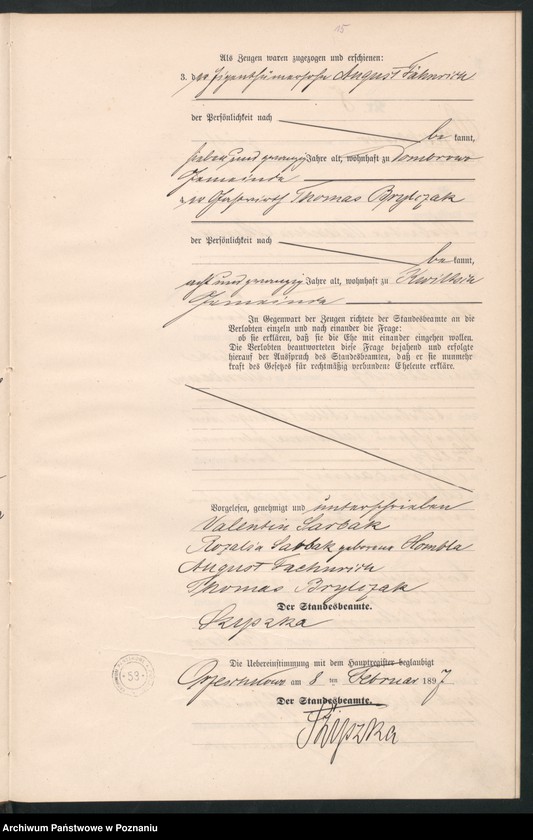 15
Als Zeugen waren zugezogen und erschienen:
3. der Eigenthümersohn August Fähnrich
der Persönlichkeit nach
be kannt,
sieben und zwanzig Jahre alt, wohnhaft zu
Gemeinde
4. der Gastwirth Thomas Brylczak
der Persönlichkeit nach
be kannt,
acht und zwanzig Jahre alt, wohnhaft zu
Gemeinde
In Gegenwart der Zeugen richtete der Standesbeamte an die
Verlobten einzeln und nach einander die Frage:
ob sie erklären, daß sie die Ehe mit einander eingehen wollen.
Die Verlobten beantworteten diese Frage bejahend und erfolgte
hierauf der Ausspruch des Standesbeamten, daß er sie nunmehr
kraft des Gesetzes für rechtmäßig verbundene Eheleute erkläre.
Vorgelesen, genehmigt und unterschrieben
Valentin Sarbak
Rozalia Sarbak geborene
August Faehnrich
Thomas Brylczak
Der Standesbeamte.
Die Uebereinstimmung mit dem Hauptregister beglaubigt
am 8 ten Februar 1897
Der Standesbeamte.
53
Archiwum Państwowe w Poznaniu